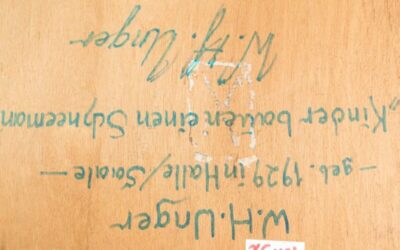 W.H. Unger
— geb. 1929 in Halle/Saale —
„Kinder bauten einen Schneeman
W. H. Unger